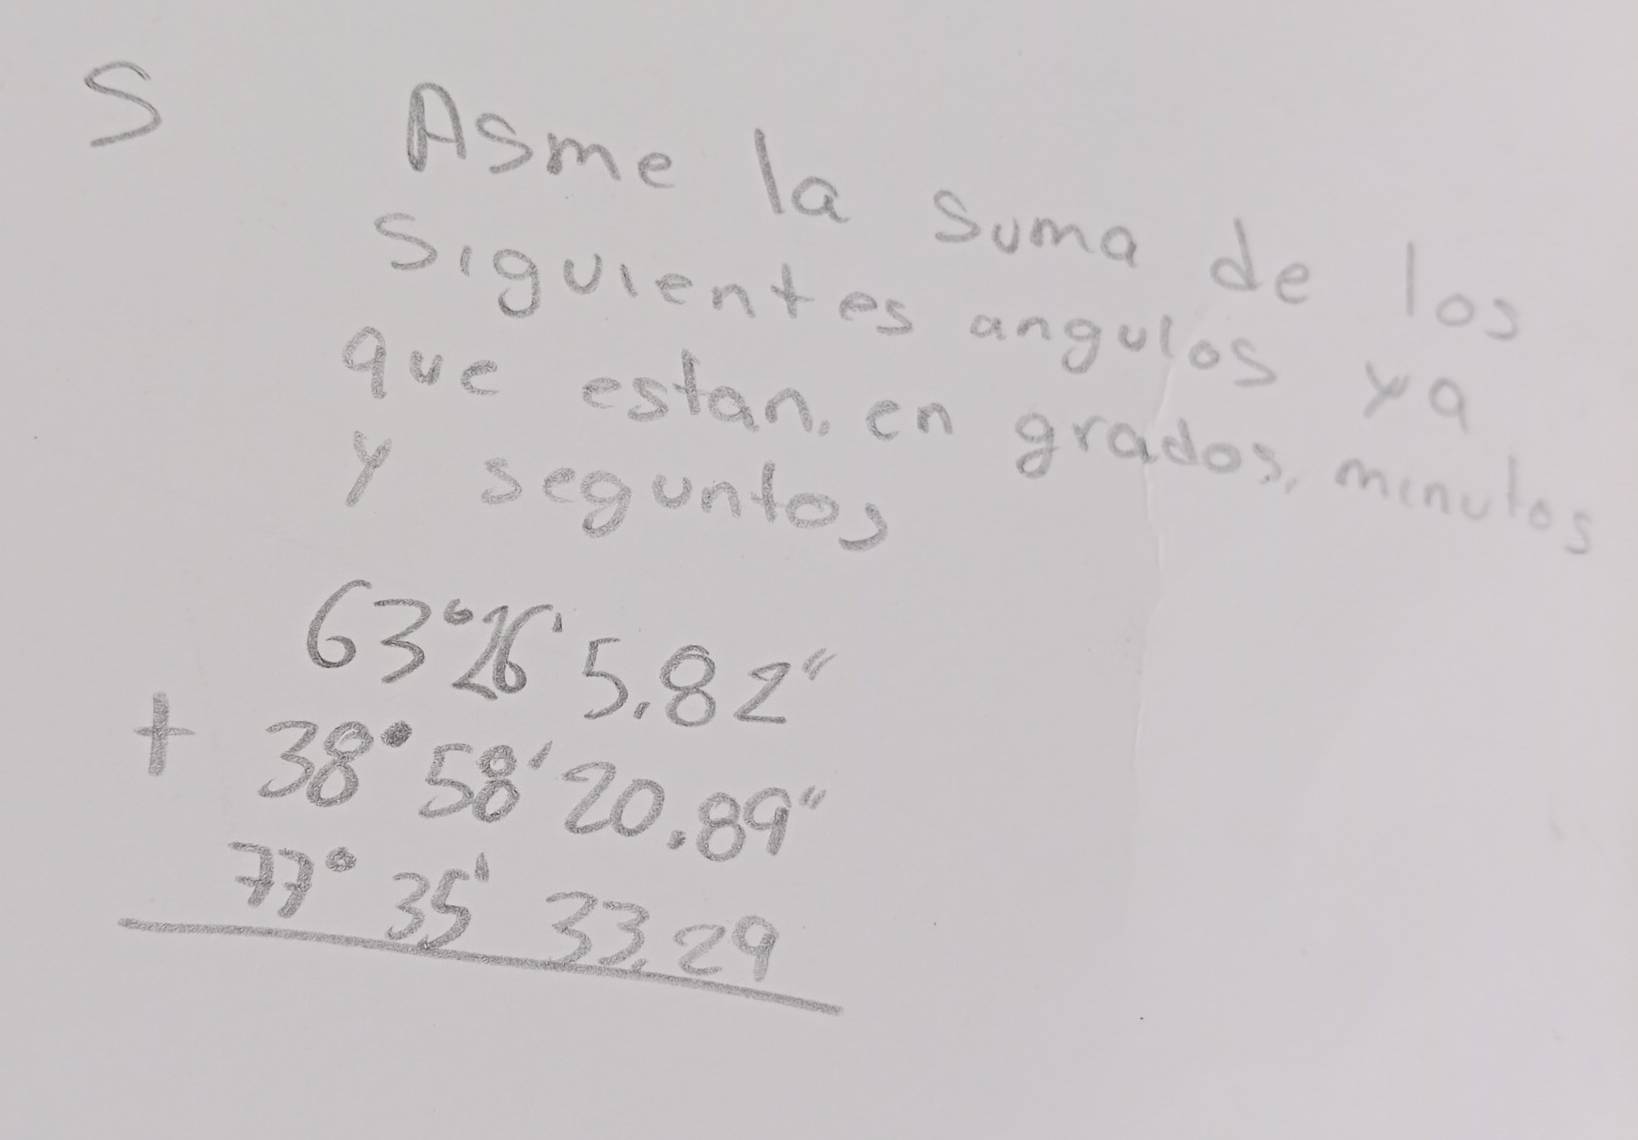 S
Asme la suma de los
siguientes angulos ya
que estan. en grados, minutos
y seguntos
63°26'5.82"
+ 38°58'20.89"
77°35'33.29